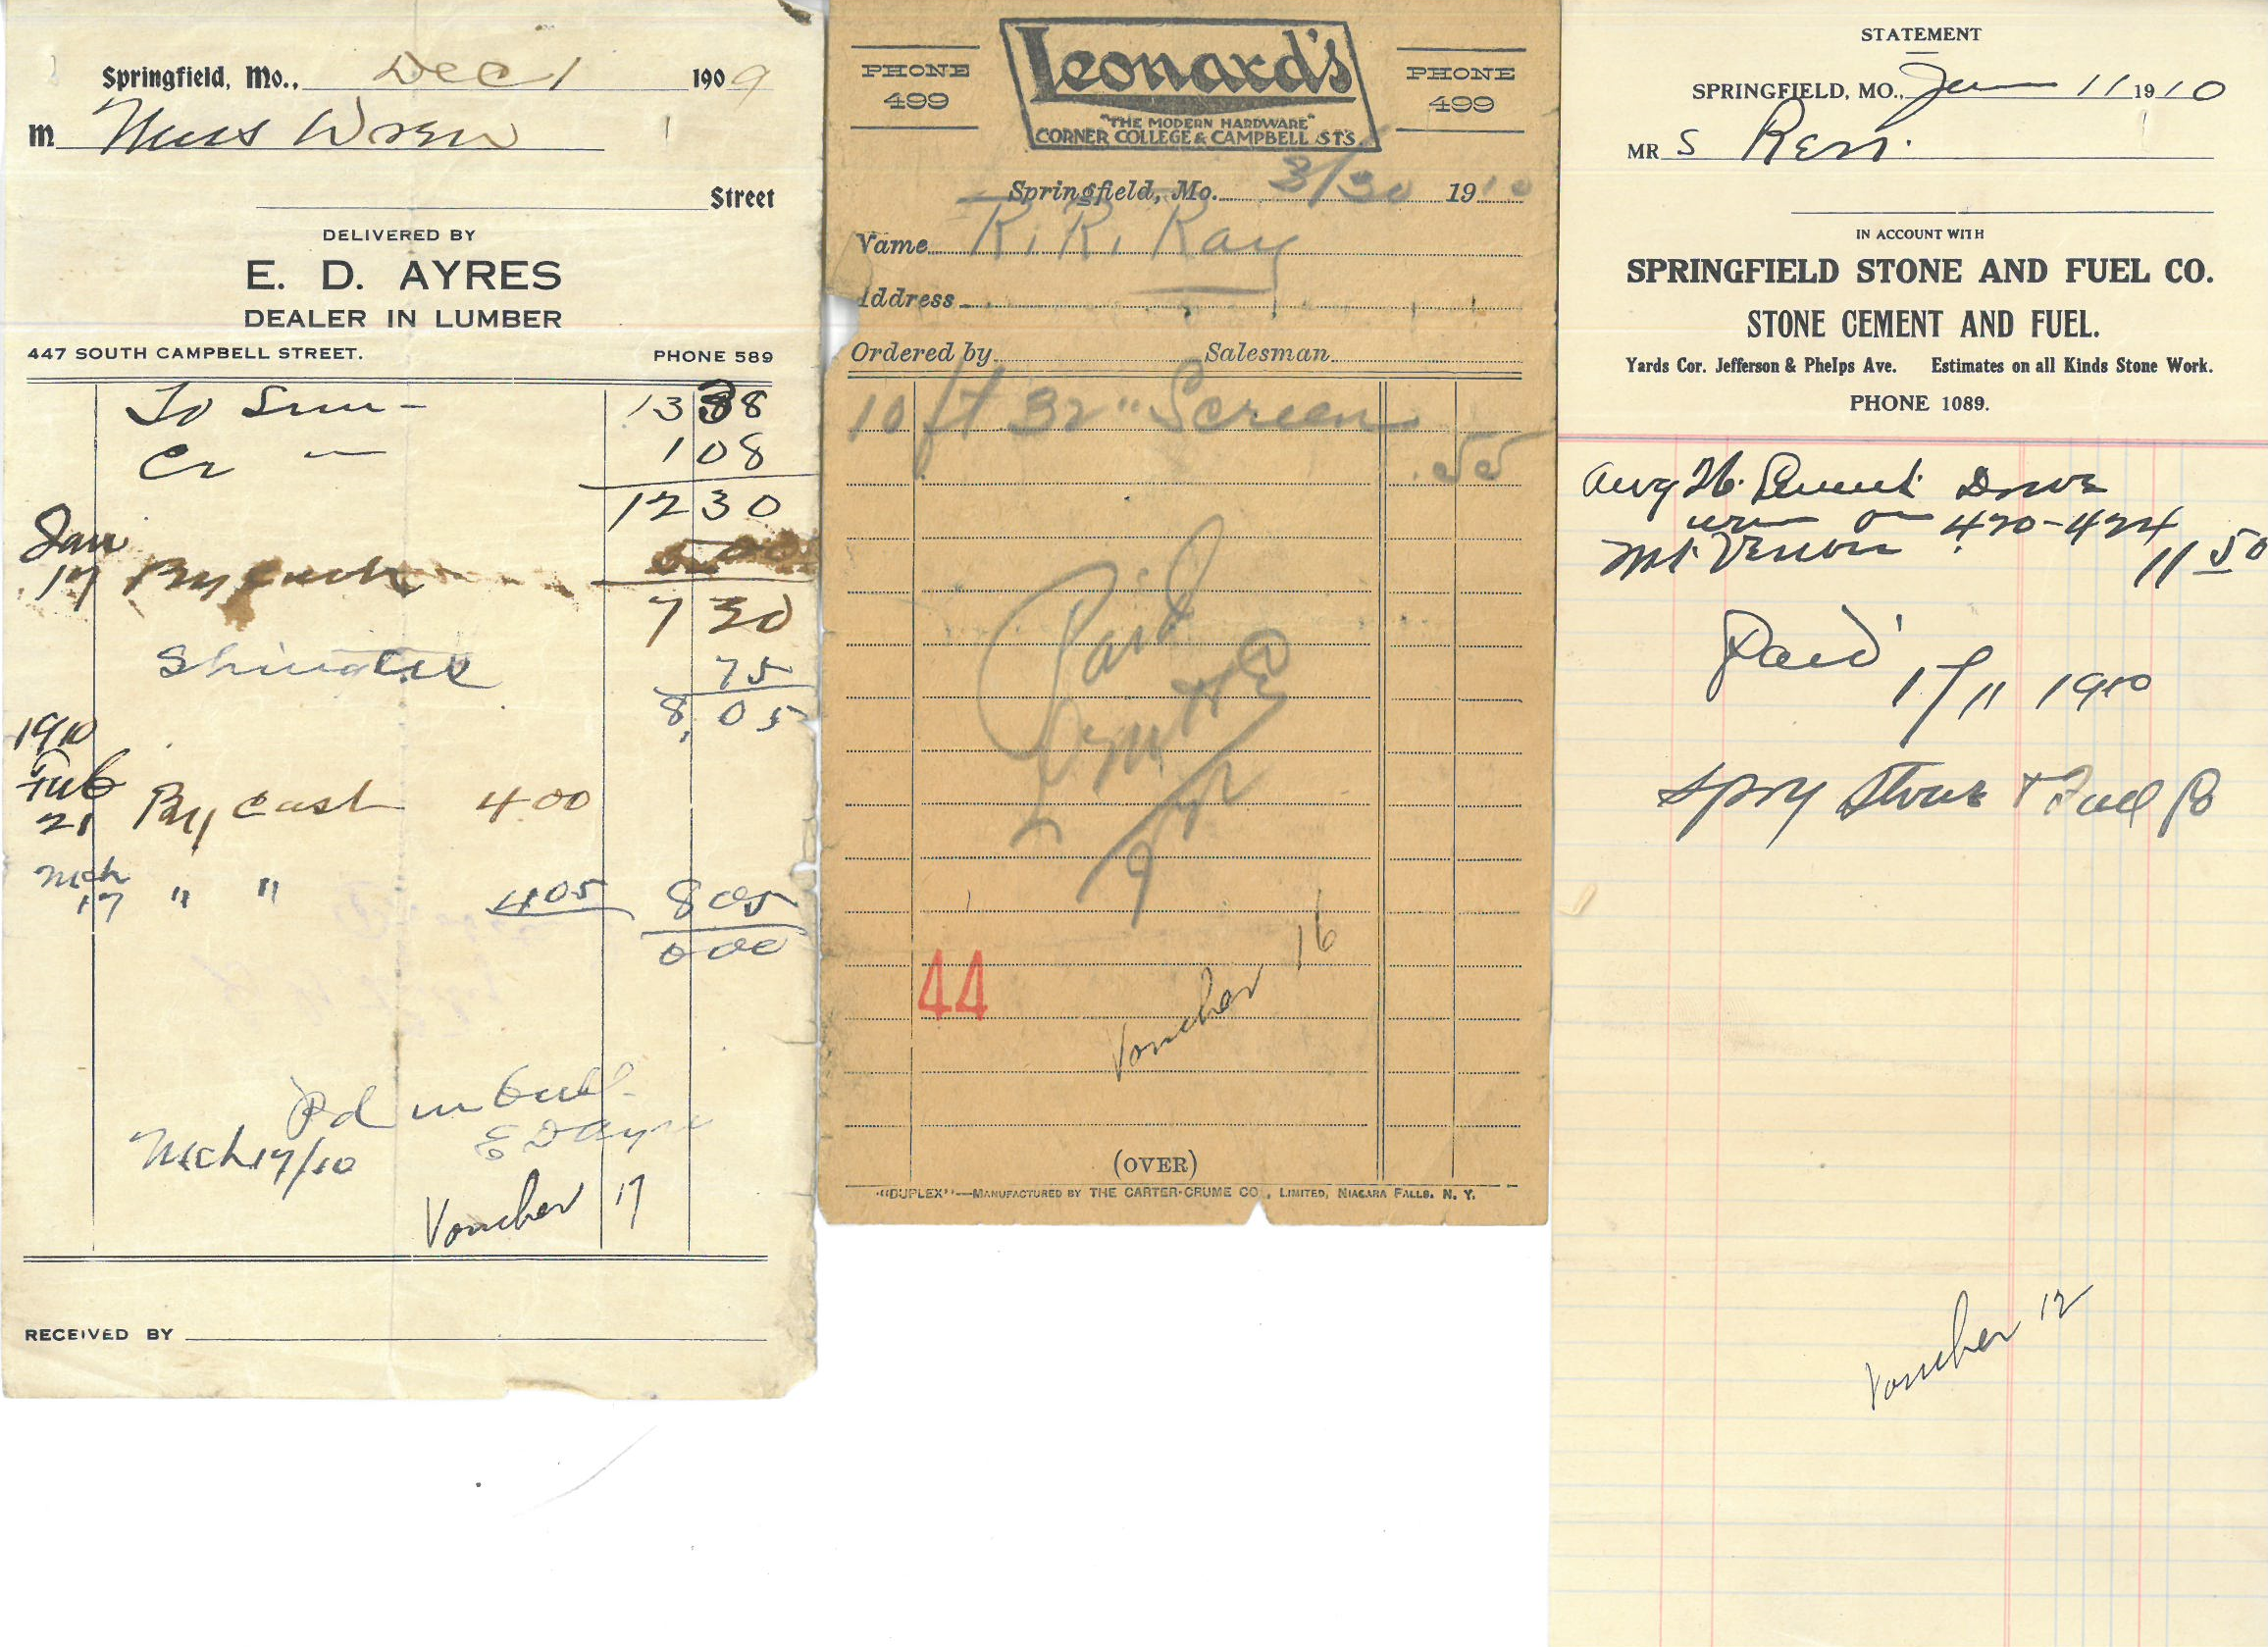 Springfield, Mo., Dec 1 1909
M Miss Wren
Street
DELIVERED BY
E. D. AYRES
DEALER IN LUMBER
447 SOUTH CAMPBELL STREET. PHONE 589
To 13 38
Cr 1 08
12 30
Jan
17 By Cash 5 00
7 30
Shingles 75
8 05
1910
Feb
21 By Cash 4 00
Mch
17 " " 4 05 8 05
0 00
Pd in full
E D Ayres
Mch 17/10
Voucher 17
RECEIVED BY
PHONE
499
Leonard's
"THE MODERN HARDWARE"
CORNER COLLEGE & CAMPBELL STS.
PHONE
499
Springfield, Mo. 3/30 1910
Name R. R. Ray
Address
Ordered by Salesman
10 ft 32" Screen
.55
Paid
44
Voucher 16
(OVER)
"DUPLEX"—MANUFACTURED BY THE CARTER-CRUME CO., LIMITED, NIAGARA FALLS, N. Y.
STATEMENT
SPRINGFIELD, MO., Jan 11 1910
MR S
IN ACCOUNT WITH
SPRINGFIELD STONE AND FUEL CO.
STONE CEMENT AND FUEL.
Yards Cor. Jefferson & Phelps Ave. Estimates on all Kinds Stone Work.
PHONE 1089.
Aug 26. Cement
on 420-424
Mt. Vernon 11 50
Paid
1/11 1910
Stone & Fuel Co
Voucher 12